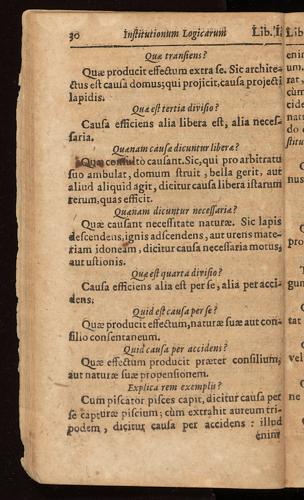 30 Institutionum Logicarum Lib. I.
Quæ transiens?
Quæ producit effectum extra se. Sic archite-
ctus est causa domus; qui projicit, causa projecti
lapidis.
Quæ est tertia divisio?
Causa efficiens alia libera est, alia neces-
saria.
Quænam causæ dicuntur liberæ?
Quæ consultò causant. Sic, qui pro arbitratu
suo ambulat, domum struit, bella gerit, aut
aliud aliquid agit, dicitur causa libera istarum
rerum, quas efficit.
Quænam dicuntur necessariæ?
Quæ causant necessitate naturæ. Sic lapis
descendens, ignis adscendens, aut urens mate-
riam idoneam, dicitur causa necessaria motus,
aut ustionis.
Quæ est quarta divisio?
Causa efficiens alia est per se, alia per acci-
dens.
Quid est causa per se?
Quæ producit effectum, naturæ suæ aut con-
silio consentaneum.
Quid causa per accidens?
Quæ effectum producit præter consilium,
aut naturæ suæ propensionem.
Explica rem exemplis?
Cum piscator pisces capit, dicitur causa per
se capturæ piscium; cùm extrahit aureum tri-
podem, dicitur causa per accidens: illud
enim